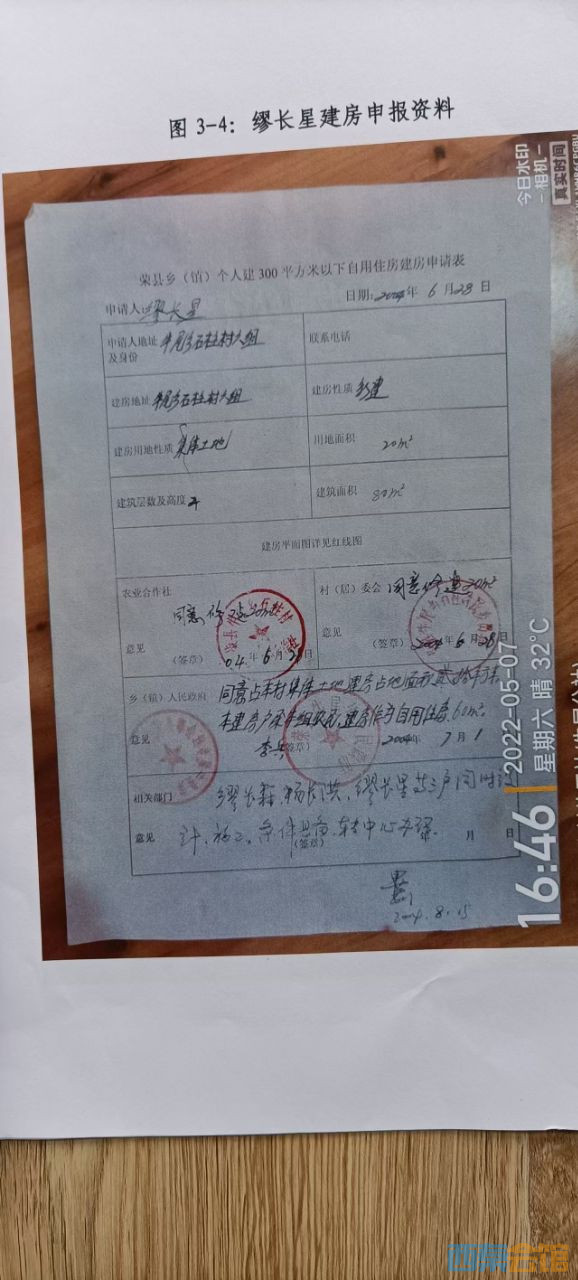 图 3-4：缪长星建房申报资料
今日水印
-相机-
真实时间
荣县乡（镇）个人建 300 平方米以下自用住房建房申请表
申请人：缪长星
日期：2004年 6 月28 日
申请人地址及身份 牛尾乡石柱村六组
联系电话
建房地址 牛尾乡石柱村六组
建房性质 新建
建房用地性质 集体土地
用地面积 20m²
建筑层数及高度
建筑面积 80m²
建房平面图详见红线图
农业合作社
同意修建20m²
意见
（签章） 04年 6 月28日
村（居）委会 同意修建20m²
意见
（签章） 2004年 6 月28日
乡（镇）人民政府 同意占本村集体土地建房占地面积贰拾平方
本建房户系本组农民，建房作为自用住房，60m²。
意见 李兵（签章） 2004年 7 月 1
相关部门 缪长森、杨长洪、缪长星等三户同时设
计、施工，条件具备，转中心办理。
意见 （签章） 月 日
2004.8.15
16:46
2022-05-07
星期六 晴 32°C
西祠会馆